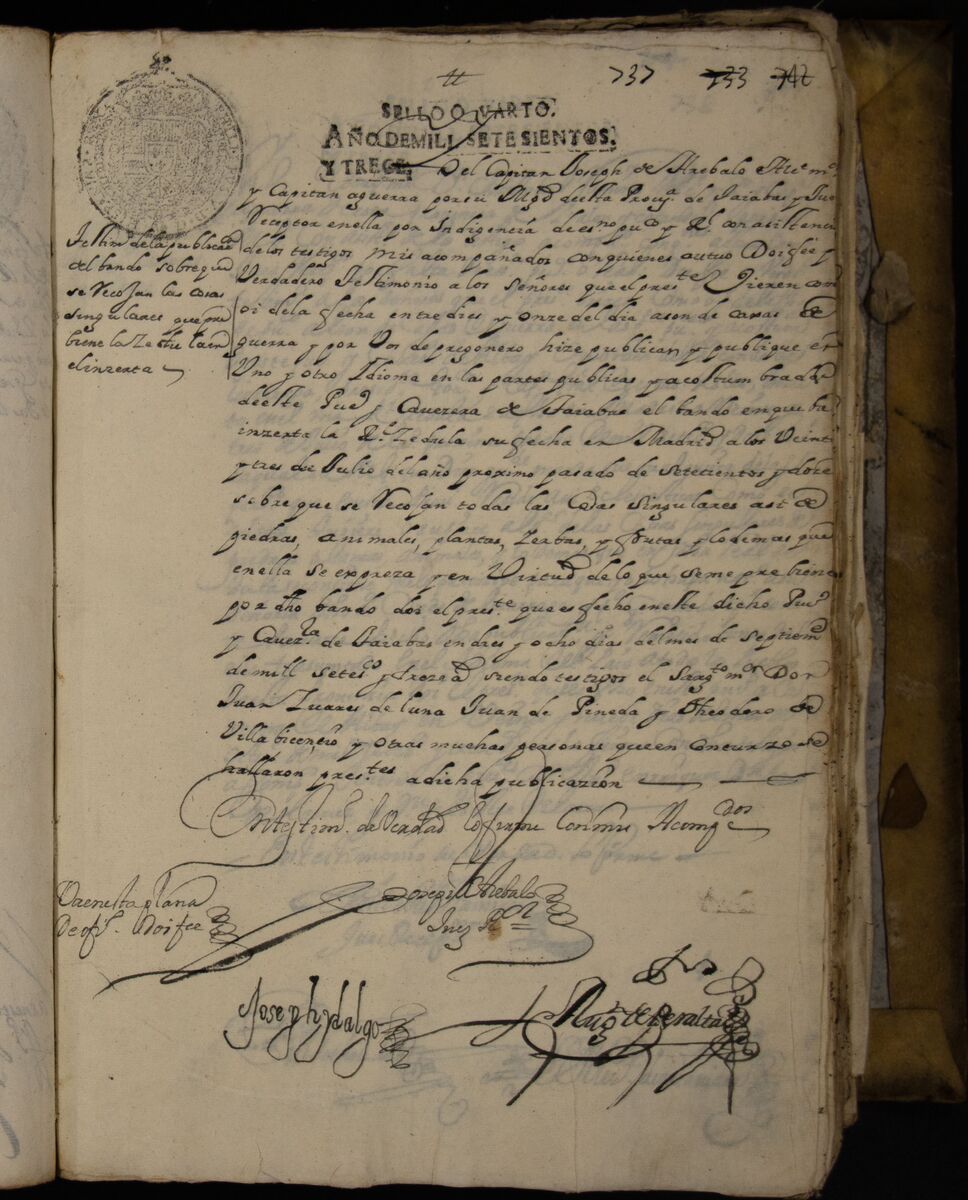 737 733 742
SELLO QVARTO.
AÑO DE MILL SETESIENTOS.
Y TRECE.
El Capitan Joseph de Arebalo Alce mor
y Capitan aguerra por su Magd de esta Prouya de Taiabas y Juez
Receptor en ella por Indigencia de esno puco y Rl con asistencia
de los testigos mis acompañados con quienes autuo Doi fee y
Verdadero testimonio a los Señores que el preste Vieren como
oi dia de la fecha entre dies y onze del dia a son de caxas de
guerra y por Vos de pregonero hize publicar y publique en
Vno y otro Idioma en las partes publicas y acostumbradas
de este Puo y Cauezera de Taiabas el bando en que ba
inzerta la Rl Zedula su fecha en Madrid a los Veinte
y tres de Julio del año proximo pasado de setecientos y doze
sobre que se Recojan todas las Cosas Singulares asi de
piedras, animales, plantas, Zerbas, y frutas y lo demas que
en ella se expreza y en Virtud de lo que se me prebiene
por dho bando doi el preste que es fecho en este dicho Puo
y Cauezra de Taiabas en dies y ocho dias del mes de Septieme
de mill setesos y treze as siendo testigos el Sargto mor Don
Juan Zuares de luna Juan de Pineda y Theodoro de
Villabicencio y otras muchas personas que en Concurzo se
hallaron prestes a dicha publicazion
Testimo de la publicazon
del bando sobre que
se Recojan las cosas
singulares que pre
biene la Zedula en
el inzerta
En testimo de Verdad lo firme con mis Acompdos
Va en esta plana
De ofo Doi fee
Joseph de Arebalo
Juez Ror
Joseph hidalgo
Augn de Peralta